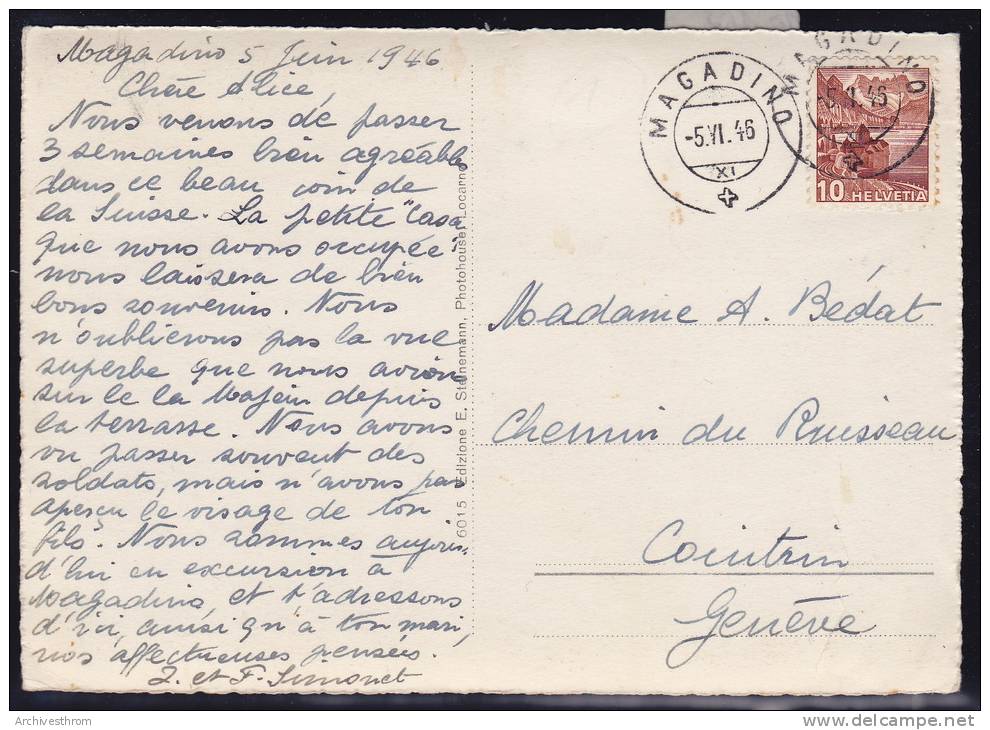 Magadino 5 Juin 1946
Chère Alice,
Nous venons de passer
3 semaines bien agréables
dans ce beau coin de
la Suisse. La petite "Casa"
que nous avons occupée
nous laissera de bien
bons souvenirs. Nous
n'oublierons pas la vue
superbe que nous avions
sur le la Majeur depuis
la terrasse. Nous avons
vu passer souvent des
soldats, mais n'avons pas
aperçu le visage de ton
fils. Nous sommes aujour-
d'hui en excursion à
Magadino, et t'adressons
d'ici, ainsi qu'à ton mari,
nos affectueuses pensées.
J. et F. Simonet
6015 Edizione E. Steinemann, Photohouse, Locarno
MAGADINO
-5.VI.46
XI
MAGADINO
10 HELVETIA
Madame A. Bédat
Chemin du Ruisseau
Cointrin
Genève
Archivesthrom
www.delcampe.net